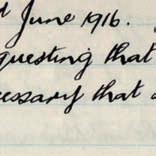 June 1916.
questing that
cessary that